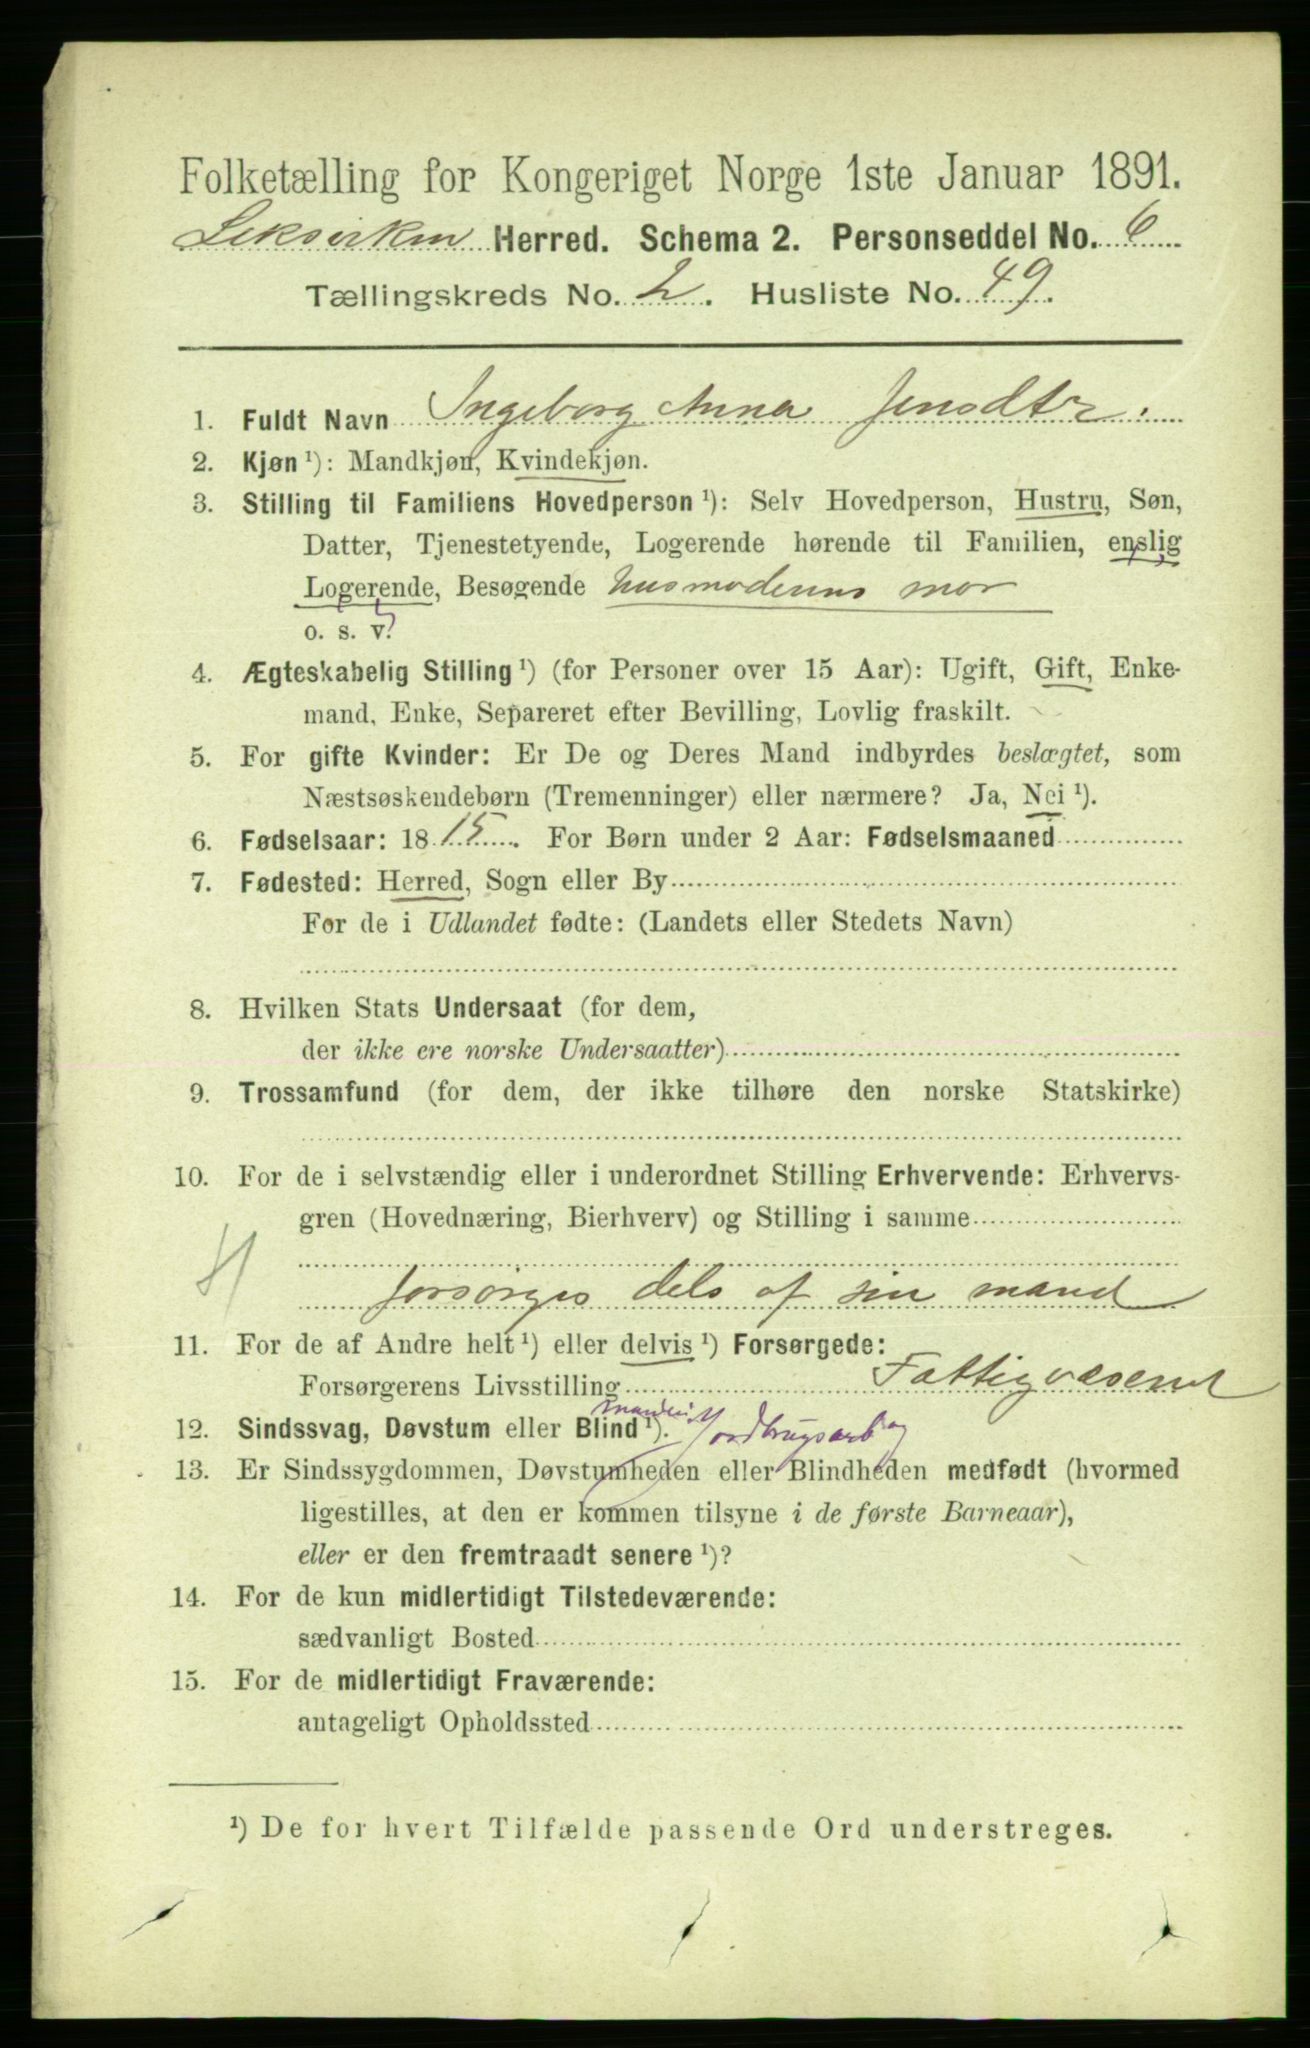 Folketælling for Kongeriget Norge 1ste Januar 1891.
Leksviken Herred. Schema 2. Personseddel No. 6
Tællingskreds No. 2. Husliste No. 49.
1. Fuldt Navn Ingeborg Anna Jensdtr.
2. Kjøn ¹): Mandkjøn, Kvindekjøn.
3. Stilling til Familiens Hovedperson ¹): Selv Hovedperson, Hustru, Søn,
Datter, Tjenestetyende, Logerende hørende til Familien, enslig
Logerende, Besøgende husmoderens mor
o. s. v.
4. Ægteskabelig Stilling ¹) (for Personer over 15 Aar): Ugift, Gift, Enke-
mand, Enke, Separeret efter Bevilling, Lovlig fraskilt.
5. For gifte Kvinder: Er De og Deres Mand indbyrdes beslægtet, som
Næstsøskendebørn (Tremenninger) eller nærmere? Ja, Nei ¹).
6. Fødselsaar: 1815. For Børn under 2 Aar: Fødselsmaaned
7. Fødested: Herred, Sogn eller By
For de i Udlandet fødte: (Landets eller Stedets Navn)
8. Hvilken Stats Undersaat (for dem,
der ikke ere norske Undersaatter)
9. Trossamfund (for dem, der ikke tilhøre den norske Statskirke)
10. For de i selvstændig eller i underordnet Stilling Erhvervende: Erhvervs-
gren (Hovednæring, Bierhverv) og Stilling i samme
forsørges dels af sin mand
11. For de af Andre helt ¹) eller delvis ¹) Forsørgede:
Forsørgerens Livsstilling Fattigvæsenet
12. Sindssvag, Døvstum eller Blind ¹). Jordbrugsarb
13. Er Sindssygdommen, Døvstumheden eller Blindheden medfødt (hvormed
ligestilles, at den er kommen tilsyne i de første Barneaar),
eller er den fremtraadt senere ¹)?
14. For de kun midlertidigt Tilstedeværende:
sædvanligt Bosted
15. For de midlertidigt Fraværende:
antageligt Opholdssted
¹) De for hvert Tilfælde passende Ord understreges.